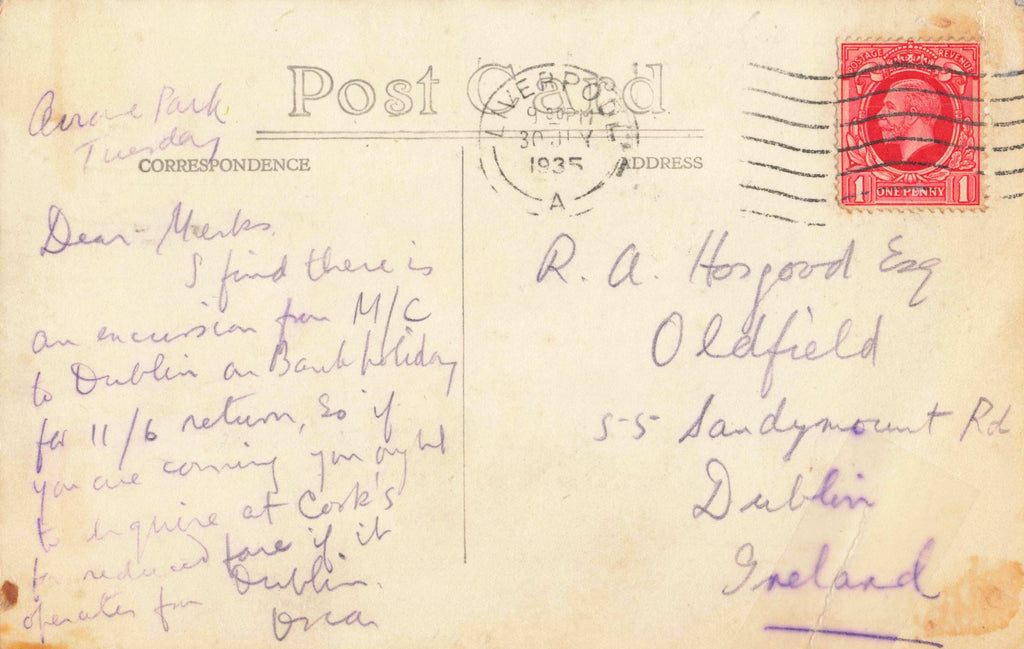 Post Card
CORRESPONDENCE
ADDRESS
LIVERPOOL
9 30 PM
30 JLY
1935
A
POSTAGE REVENUE
1 ONE PENNY 1
Park
Tuesday
Dear
I find there is
an excursion from M/C
to Dublin on Bank holiday
for 11/6 return, So if
you are coming you might
to enquire at Cook's
for reduced fare if it
operates from Dublin.
R. A. Hosgood Esq
Oldfield
55 Sandymount Rd
Dublin
Ireland